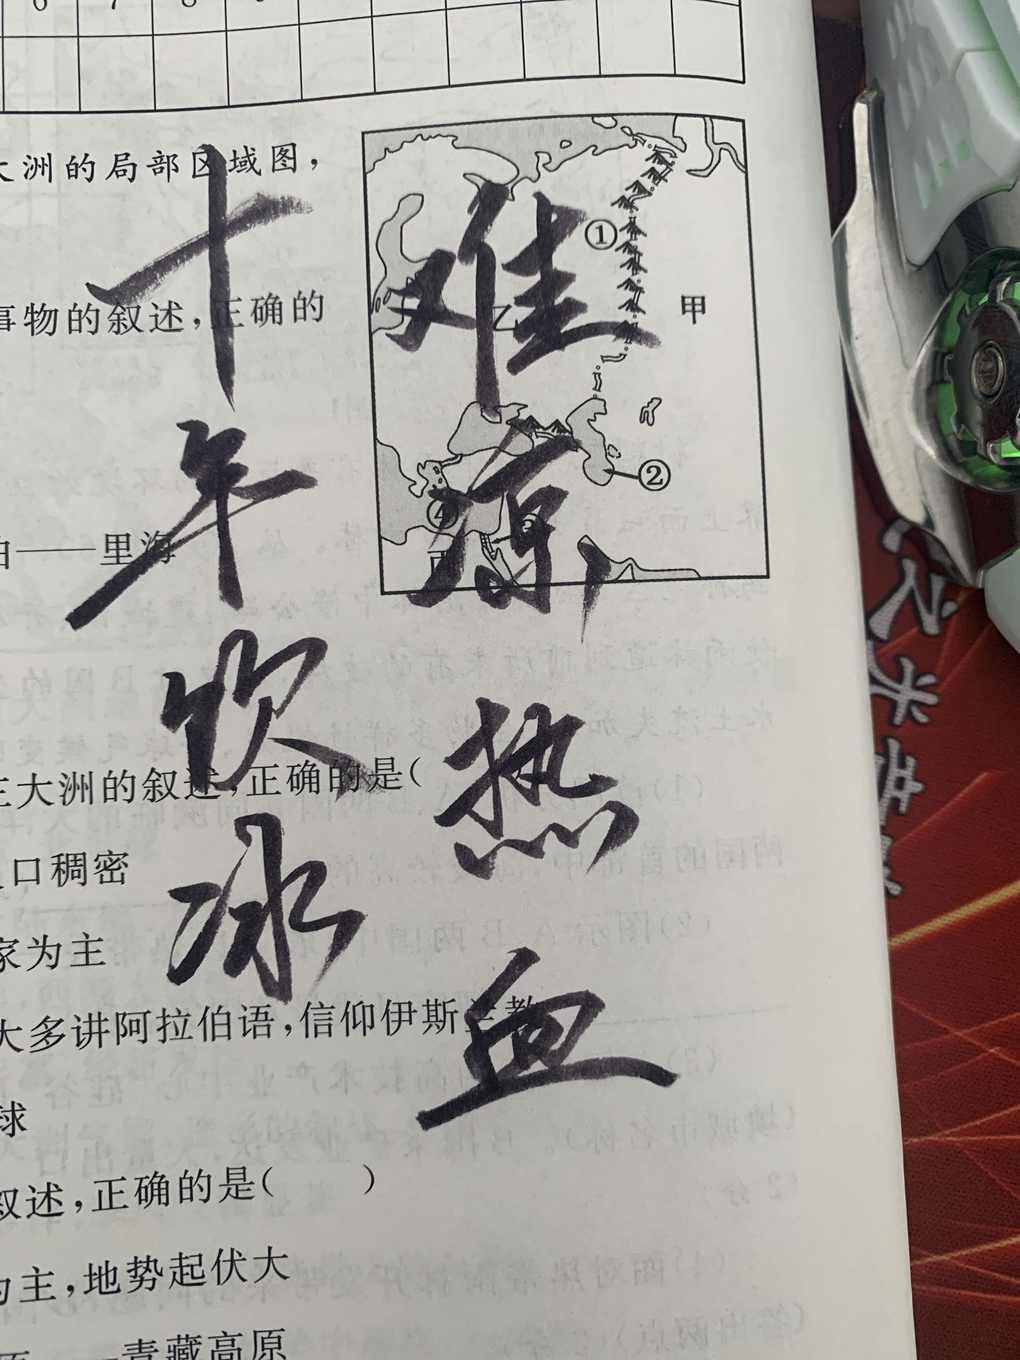 6 7 8
大洲的局部区域图，
事物的叙述，正确的
——里海
三大洲的叙述，正确的是(
口稠密
家为主
大多讲阿拉伯语，信仰伊斯兰教
球
叙述，正确的是(　　)
为主，地势起伏大
青藏高原
①
甲
乙
②
④
十年饮冰
难凉热血